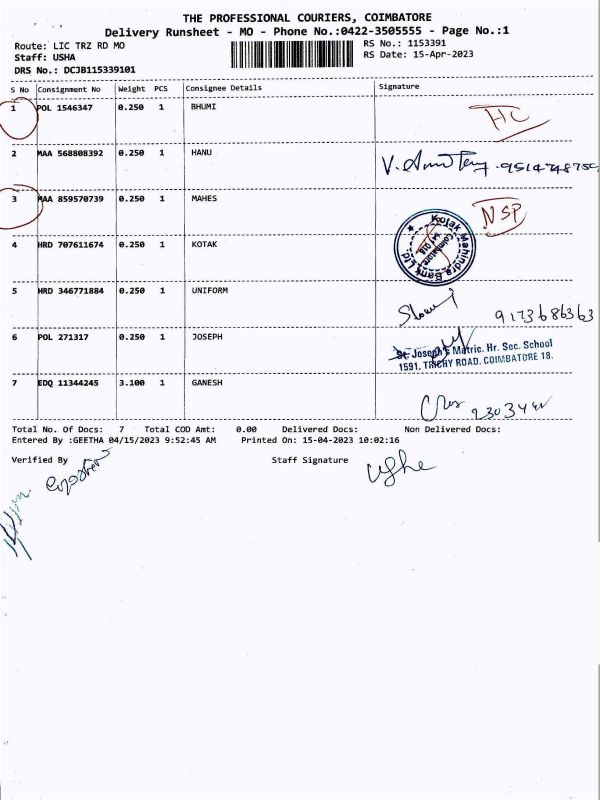 THE PROFESSIONAL COURIERS, COIMBATORE
Delivery Runsheet - MO - Phone No.:0422-3505555 - Page No.:1
Route: LIC TRZ RD MO RS No.: 1153391
Staff: USHA RS Date: 15-Apr-2023
DRS No.: DCJB115339101
S No Consignment No Weight PCS Consignee Details Signature
1 POL 1546347 0.250 1 BHUMI HC
2 MAA 568808392 0.250 1 HANU
3 MAA 859570739 0.250 1 MAHES NSP
4 HRD 707611674 0.250 1 KOTAK Kotak Mahindra Bank Ltd Coimbatore
5 HRD 346771884 0.250 1 UNIFORM 9173686363
6 POL 271317 0.250 1 JOSEPH St. Joseph's Matric. Hr. Sec. School
1591, TRICHY ROAD, COIMBATORE 18.
7 EDQ 11344245 3.100 1 GANESH
Total No. Of Docs: 7 Total COD Amt: 0.00 Delivered Docs: Non Delivered Docs:
Entered By :GEETHA 04/15/2023 9:52:45 AM Printed On: 15-04-2023 10:02:16
Verified By Staff Signature